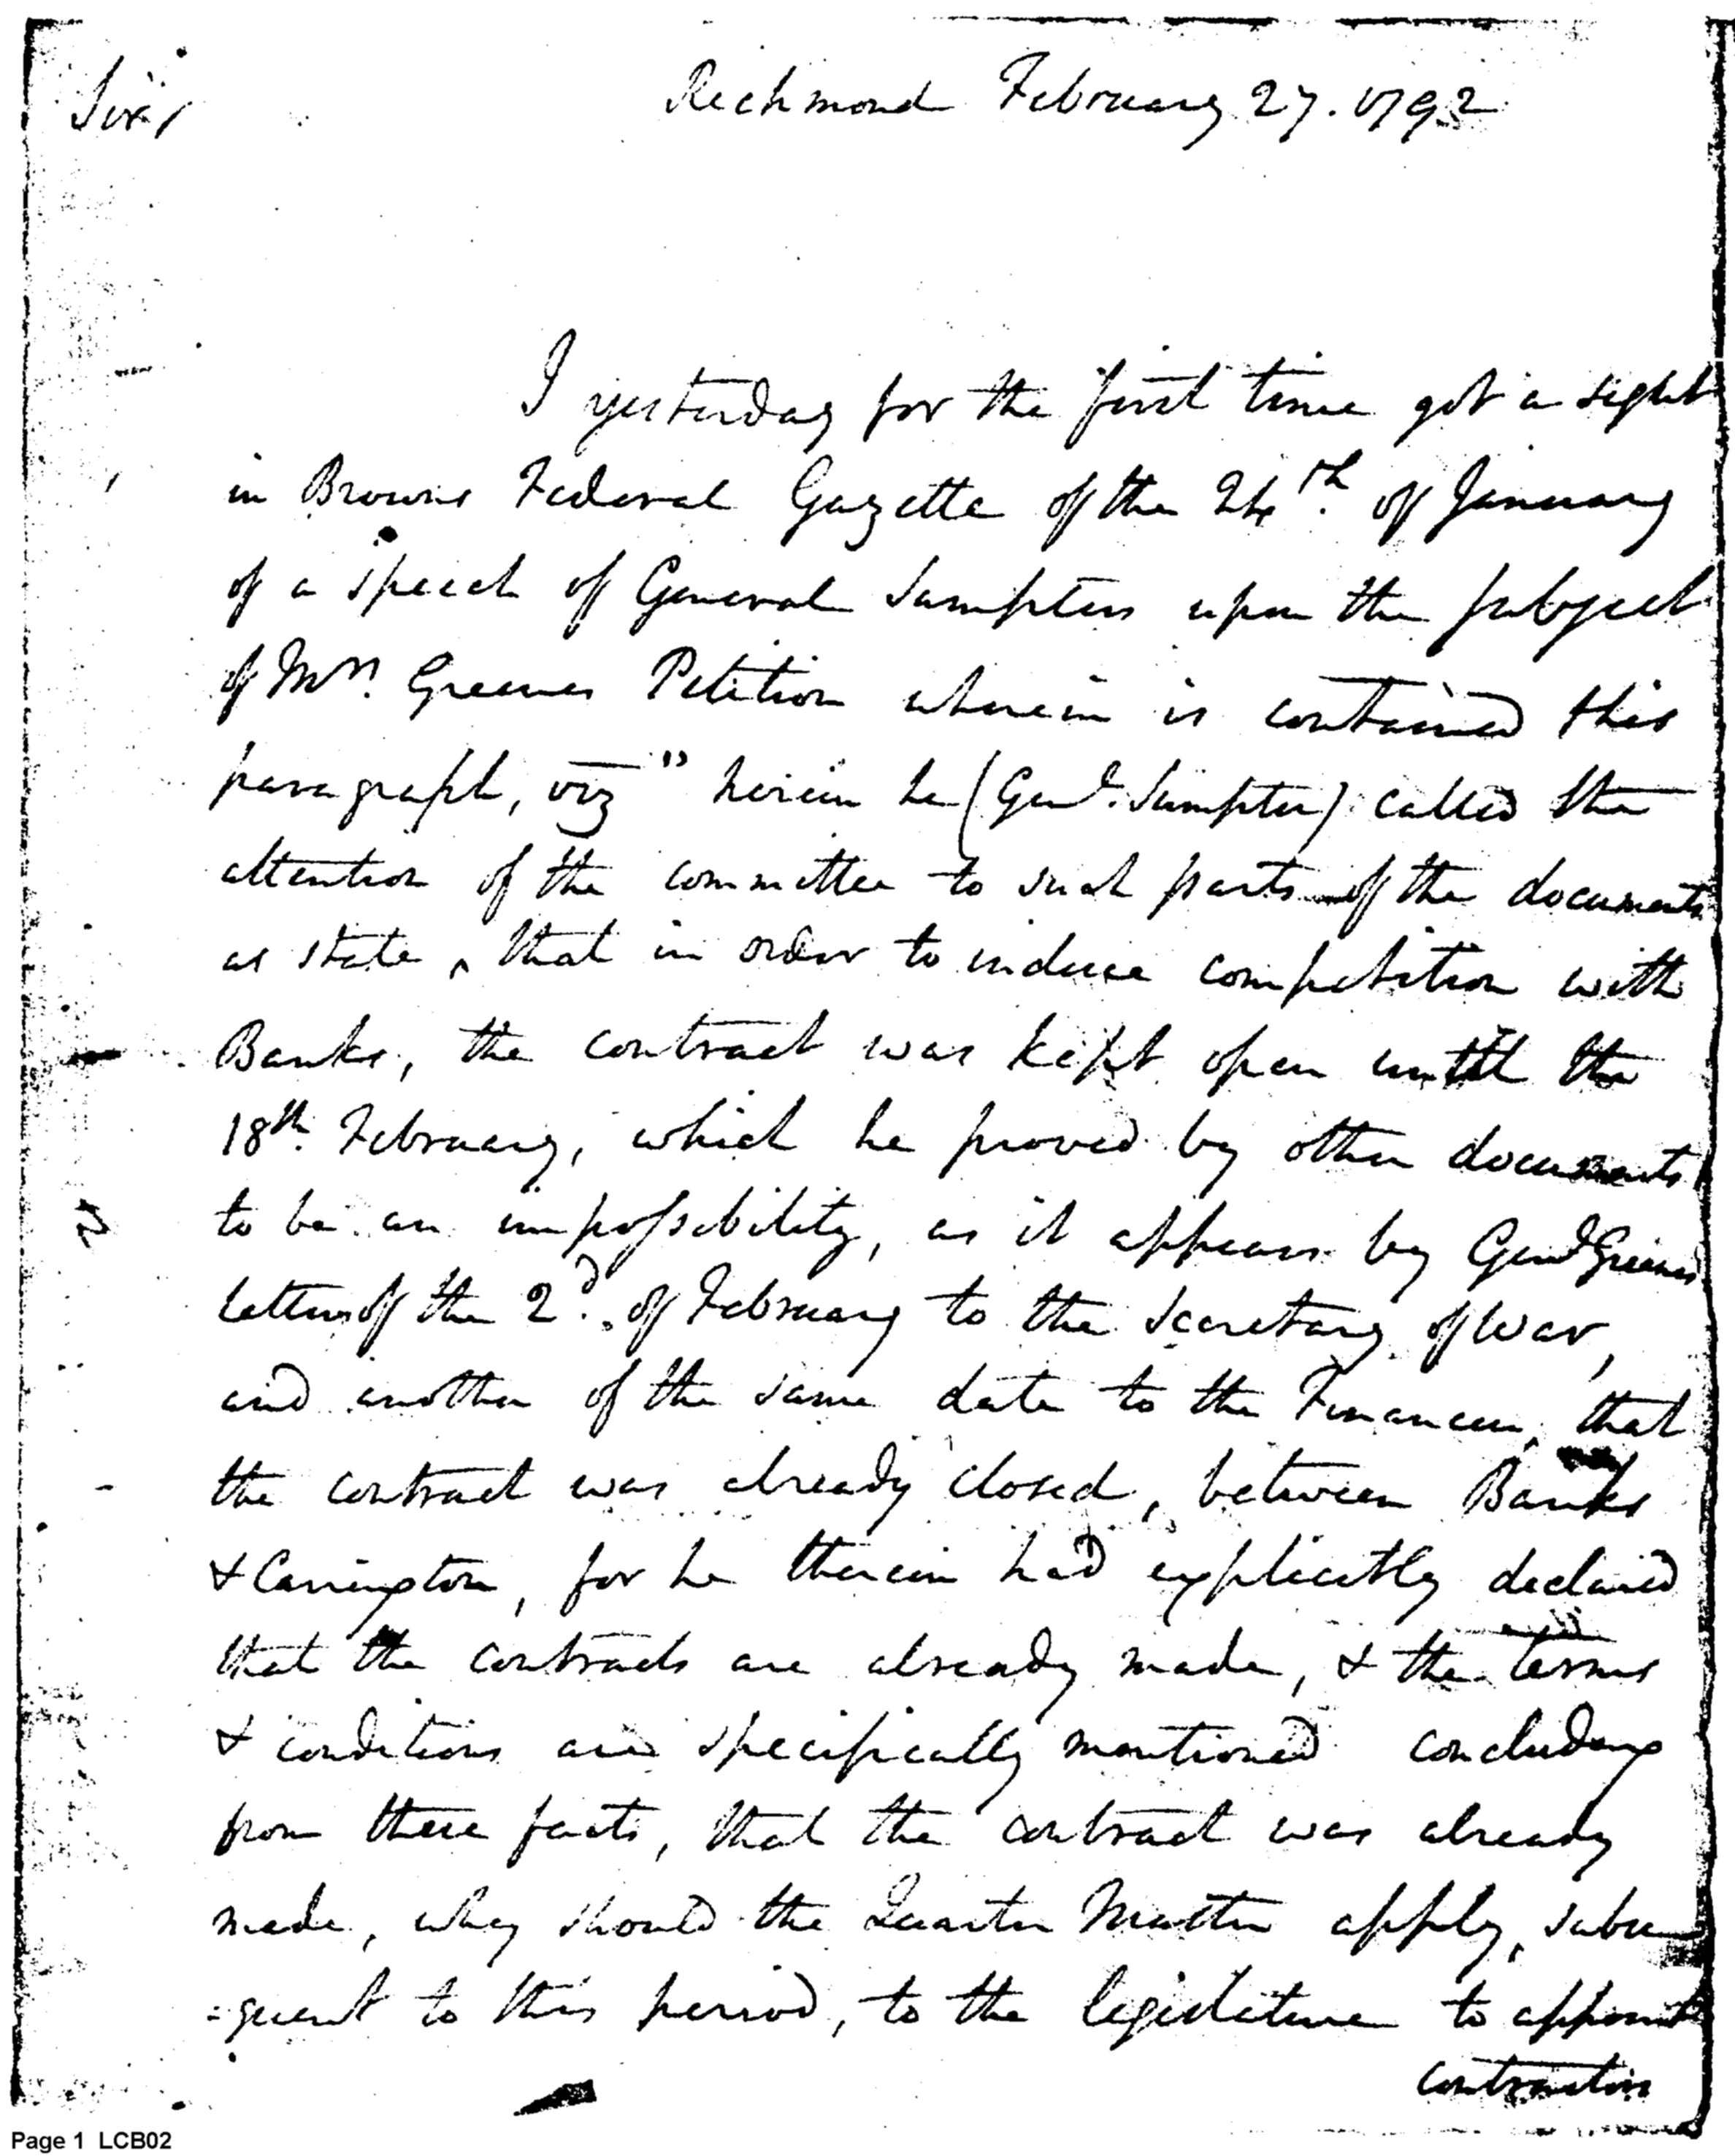 Richmond February 27. 1792
Sir,
I yesterday for the first time got a sight
in Browns Federal Gazette of the 24th. of January
of a speech of General Sumpters upon the subject
of Mrs. Greenes Petition wherein is contained this
paragraph, viz " herein he (Genl. Sumpter) called the
attention of the committee to such parts of the documents
as state, that in order to induce competition with
Banks, the contract was kept open until the
18th. February, which he proved by other documents
to be an impossibility, as it appears by Genl Greenes
letters of the 2d. of February to the Secretary of War,
and another of the same date to the Financier, that
the contract was already closed, between Banks
& Carrington, for he therein had explicitly declared
that the contracts are already made, & the terms
& conditions are specifically mentioned concluding
from these facts, that the contract was already
made, why should the Quarter Master apply, subse
=quent to this period, to the legislature to appoint
contractors
Page 1 LCB02